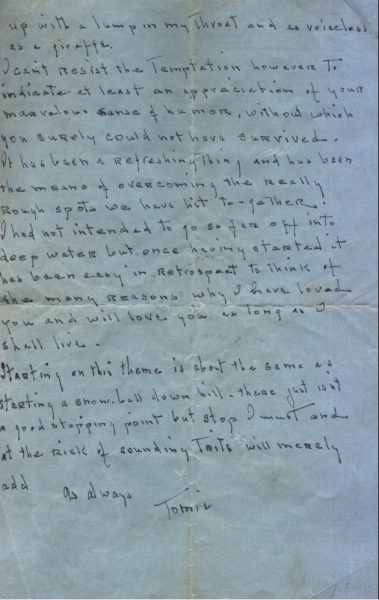 up with a lump in my throat and as voiceless
as a giraffe.
I can't resist the Temptation however To
indicate at least an appreciation of your
marvelous sense of humor, without which
you surely could not have survived.
It has been a refreshing thing and has been
the means of overcoming the really
rough spots we have hit to-gether.
I had not intended to go so far off into
deep water but once having started it
has been easy in retrospect to think of
the many reasons why I have loved
you and will love you as long as I
shall live.
Starting on this theme is about the same as
starting a snow-ball down hill - there just isn't
a good stopping point but stop I must and
at the risk of sounding Trite will merely
add
as always